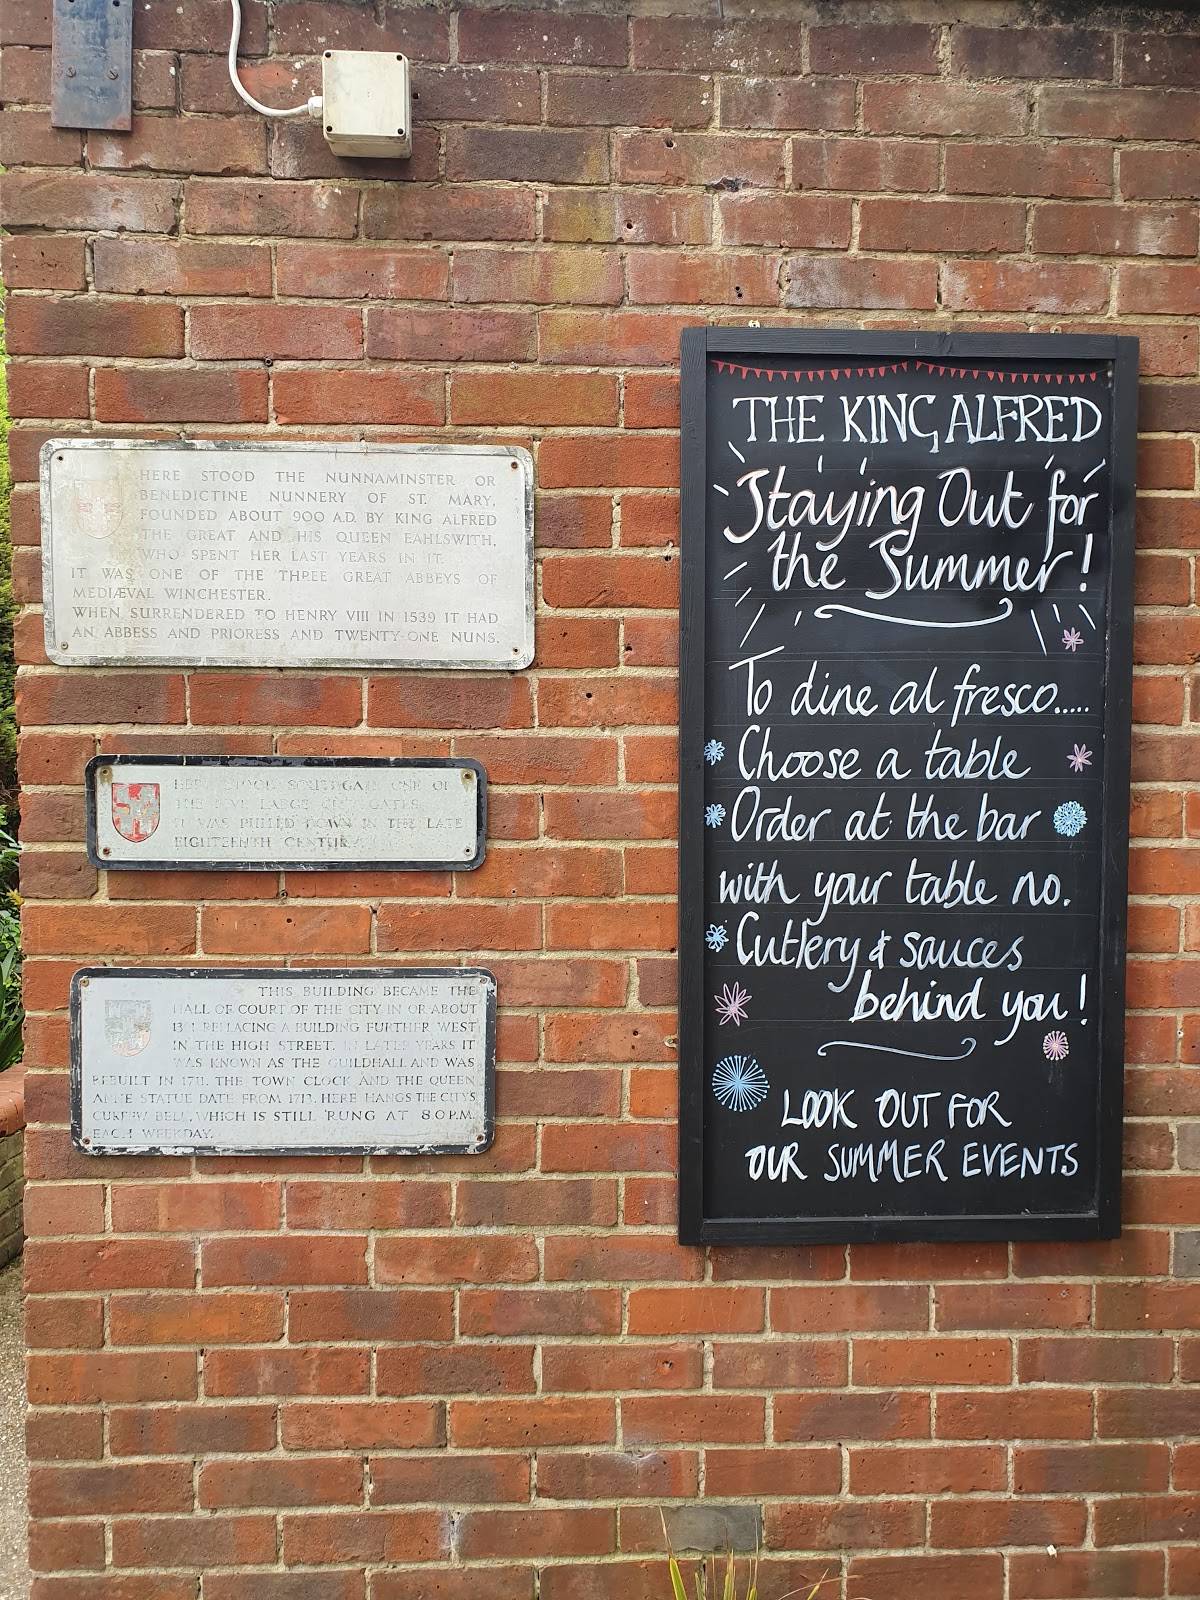 HERE STOOD THE NUNNAMINSTER OR
BENEDICTINE NUNNERY OF ST. MARY,
FOUNDED ABOUT 900 A.D. BY KING ALFRED
THE GREAT AND HIS QUEEN EAHLSWITH,
WHO SPENT HER LAST YEARS IN IT.
IT WAS ONE OF THE THREE GREAT ABBEYS OF
MEDIÆVAL WINCHESTER.
WHEN SURRENDERED TO HENRY VIII IN 1539 IT HAD
AN ABBESS AND PRIORESS AND TWENTY-ONE NUNS.
HERE STOOD ONE OF
THE FIVE LARGE CITY GATES
IT WAS PULLED DOWN THE LATE
EIGHTEENTH CENTURY
THIS BUILDING BECAME THE
HALL OF COURT OF THE CITY IN OR ABOUT
REPLACING A BUILDING FURTHER WEST
IN THE HIGH STREET. IN LATER YEARS IT
WAS KNOWN AS THE GUILDHALL AND WAS
REBUILT IN 1711. THE TOWN CLOCK AND THE QUEEN
ANNE STATUE DATE FROM 1713. HERE HANGS THE CITY'S
CURFEW BELL, WHICH IS STILL RUNG AT 8.0 P.M.
EACH WEEKDAY.
THE KING ALFRED
Staying Out for
the Summer!
To dine al fresco.....
Choose a table
Order at the bar
with your table no.
Cutlery & sauces
behind you!
LOOK OUT FOR
OUR SUMMER EVENTS